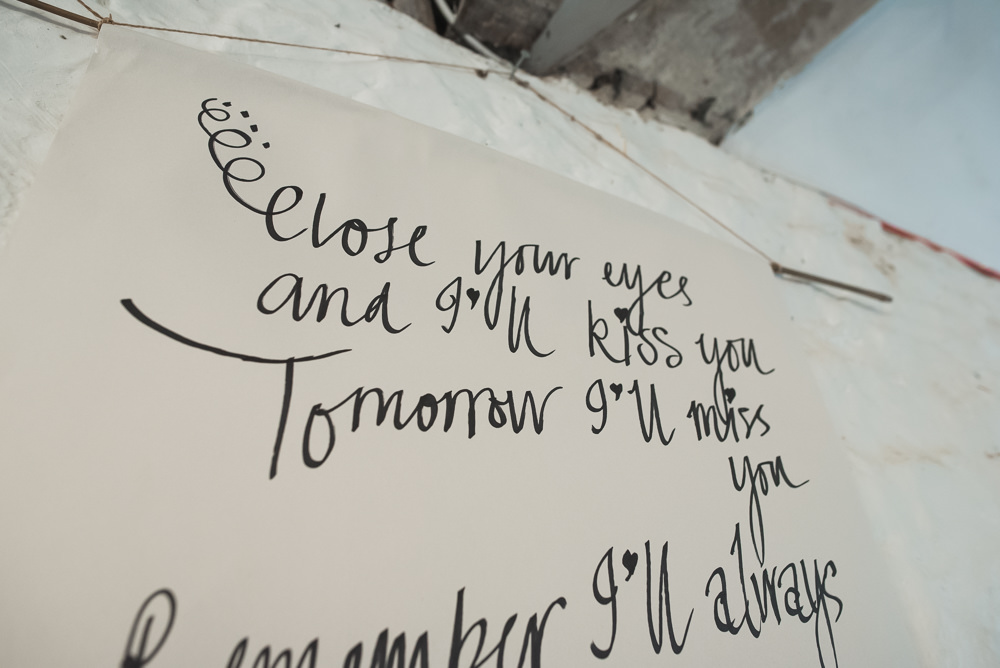 Close your eyes
and I'll kiss you
Tomorrow I'll miss
you
Remember I'll always